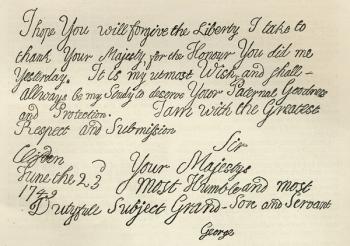 I hope You will forgive the Liberty I take to
thank Your Majesty for the Honour You did me
Yesterday. It is my utmost Wish, and shall
Allways be my Study to deserve Your Paternal Goodness
and Protection. I am with the Greatest
Respect and Submission
Sir
Clifden
Your Majestys
June the 23d
1749
most Humble and most
Dutyfull Subject Grand-Son and Servant
George